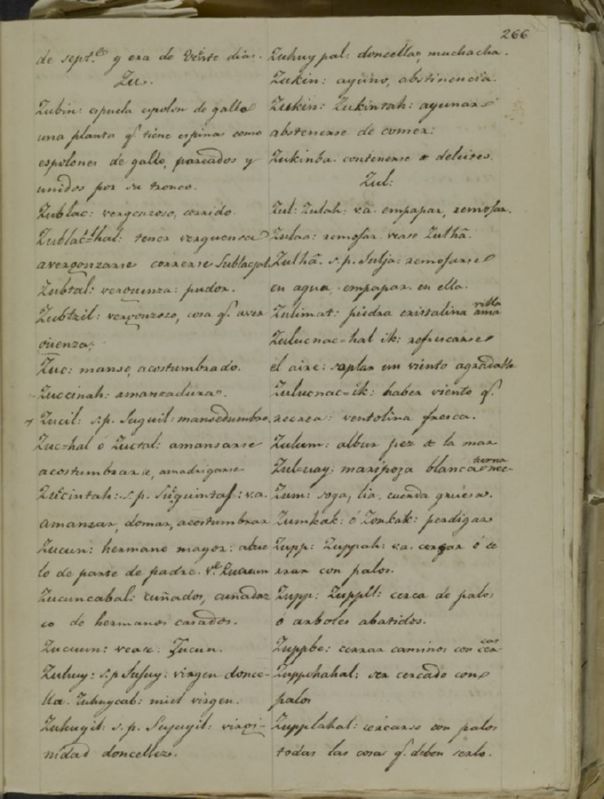 266
de sept.e y era de veinte dias.
Zu.
Zubin: espuela espolon de gallo
una planta q.e tiene espinas como
espolones de gallo, pareados y
unidos por su tronco.
Zublac: vergonzoso, corrido
Zublac-hal: tener verguensa
avergonzarse correrse Sublacjal
Zubtal: verguenza: pudor.
Zubtzil: vergonzozo, cosa q.e aver
guenza.
Zuc: manso, acostumbrado.
Zuccinah: amanzadura.
Zucil: s.p. Suquil mansedumbre.
Zuc-hal ó Zuctal: amansarse
acostumbrarse, amadrigarse
Zuccintah: s.p. va.
amanzar, domar, acostumbrar
Zucun: hermano mayor: abue
lo de parte de padre. Zucuun
Zucuncabal: cuñados, cuñadaz
co de hermanos casados.
Zucuun: vease Zucun.
Zuhuy: s.p. Sujuy: virgen donce-
lla. Zuhuycab: miel virgen.
Zuhuyil: s.p. Sujuyil: virgi-
nidad doncellez.
Zuhuy pal: doncella, muchacha.
Zukin: ayuno, abstinencia.
Zukin: Zukintah: ayunar
abstenerse de comer:
Zukinba. contenerse de deleites.
Zul:
Zul: Zulah: va. empapar, remojar.
Zulaa: remojar vease Zulhá.
Zulhá. s.p. Sulja: remojarse
en agua, empapar en ella.
Zulimat: piedra cristalina ama
rilla
Zulucnac-hal ik: refrescarse
el aire: soplar un viento agradable
Zulucnac-ik: haber viento q.e
recrea: ventolina fresca.
Zulum: albur pez de la mar
Zul-uay: maripoza blanca noc-
turna
Zum: soga, lia, cuerda gruesa.
Zumkak: ó Zonkak: perdigar
Zupp: Zuppah: va. cegar ó ce
rrar con palos.
Zupp: Zuppil: cerca de palos
o arboles abatidos.
Zuppbe: cerrar caminos con cer-
cas
Zuppchahal: ser cercado con
palos
Zupplahal: cercarse con palos
todas las cosas q.e deben serlo.